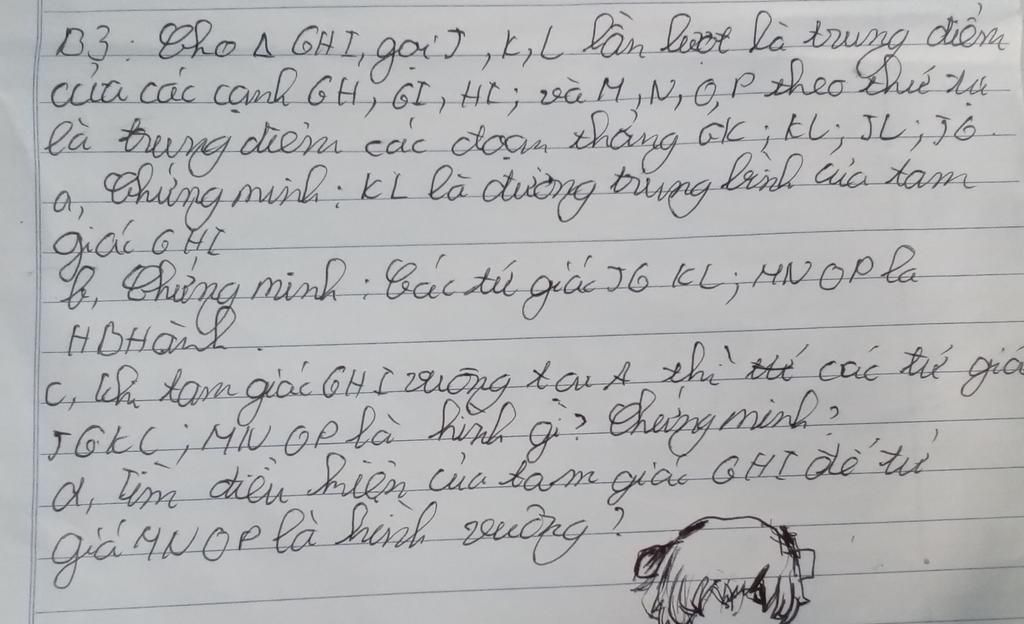 B3: Cho Δ GHI, gọi J, K, L lần lượt là trung điểm
của các cạnh GH, GI, HI; và M, N, O, P theo thứ tự
là trung điểm các đoạn thẳng GK; KL; JL; JG.
a, Chứng minh: KL là đường trung bình của tam
giác GHI
b, Chứng minh: Các tứ giác JG KL; MNOP la
HBHành.
c, Khi tam giác GHI vuông tại A thì các tứ giá
JGKL; MNOP là hình gì? Chứng minh?
d, Tìm điều kiện của tam giác GHI để tứ
giá MNOP là hình vuông?